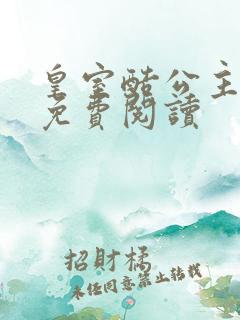 皇室酷公主
免費閱讀
招財橘
未經同意禁止轉載